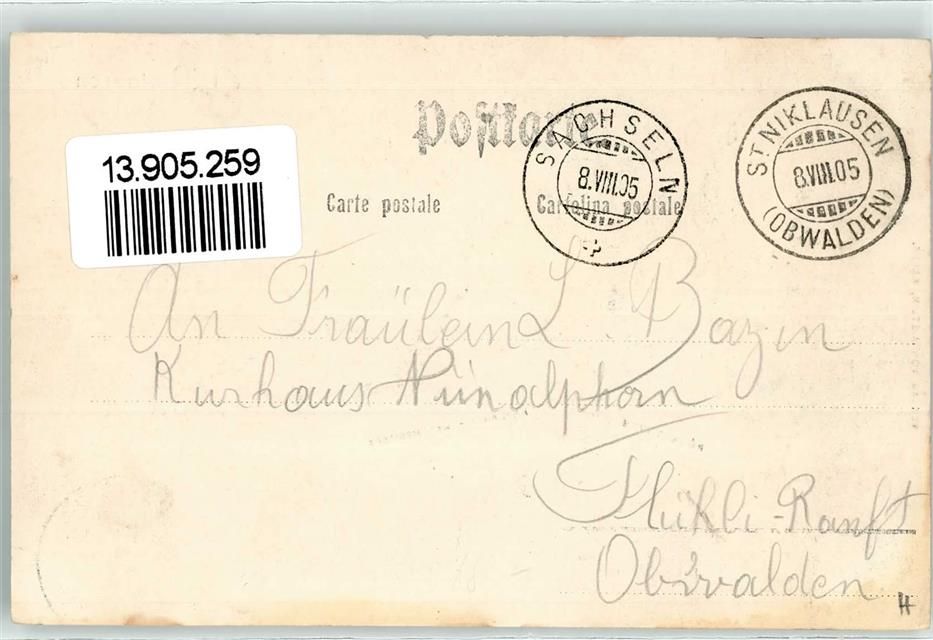 Postkarte
13.905.259
Carte postale
Cartolina postale
SACHSELN
8.VIII.05
ST NIKLAUSEN
8.VIII.05
(OBWALDEN)
An Fräulein L. Bazin
Kurhaus Nünalphorn
Flühli-Ranft
Obwalden
H